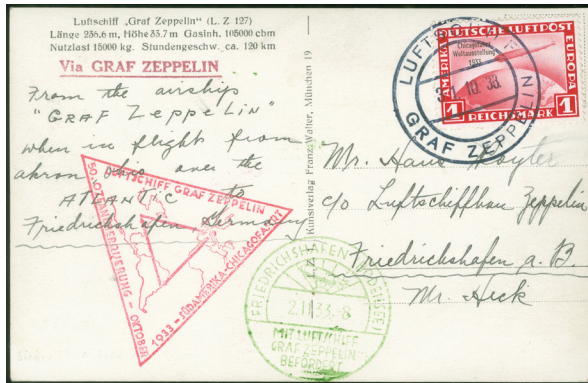 Luftschiff „Graf Zeppelin" (L. Z 127)
Länge 236,6 m, Höhe 33.7 m Gasinh. 105000 cbm
Nutzlast 15000 kg. Stundengeschw. ca. 120 km
Via GRAF ZEPPELIN
From the airship
"GRAF Zeppelin"
when in flight from
akron Ohio over the
ATLANTIC to
Friedrichshafen Germany
LUFTSCHIFF GRAF ZEPPELIN
50. OZEANÜBERQUERUNG - OKTOBER
1933 - SÜDAMERIKA-CHICAGOFAHRT
Kunstverlag Franz Walter, München 19
LUFTSCHIFF
10. 33.
GRAF ZEPPELIN
DEUTSCHE LUFTPOST
AMERIKA
EUROPA
Chicagofahrt
Weltausstellung
1933
1 REICHSMARK 1
Mr. Hans
c/o Luftschiffbau Zeppelin
Friedrichshafen a. B.
Mr. Heck
FRIEDRICHSHAFEN (BODENSEE)
2.11.33.-8
MIT LUFTSCHIFF
GRAF ZEPPELIN
BEFÖRDERT